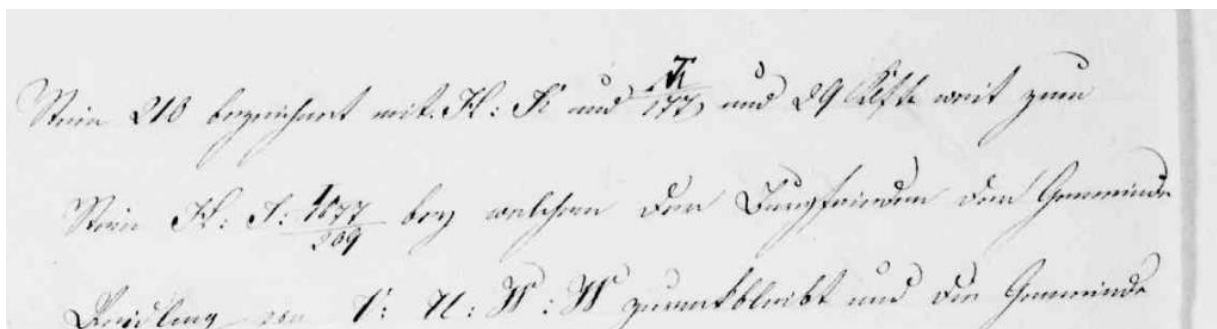 Stein 210 bezeichnet mit. H: K und 177 und 29 Klft weit zum
Stein H: S: 1677 / 509 bey welchem der Burgfrieden der Gemeinde
V: U: W: W zurückbleibt und die Gemeinde